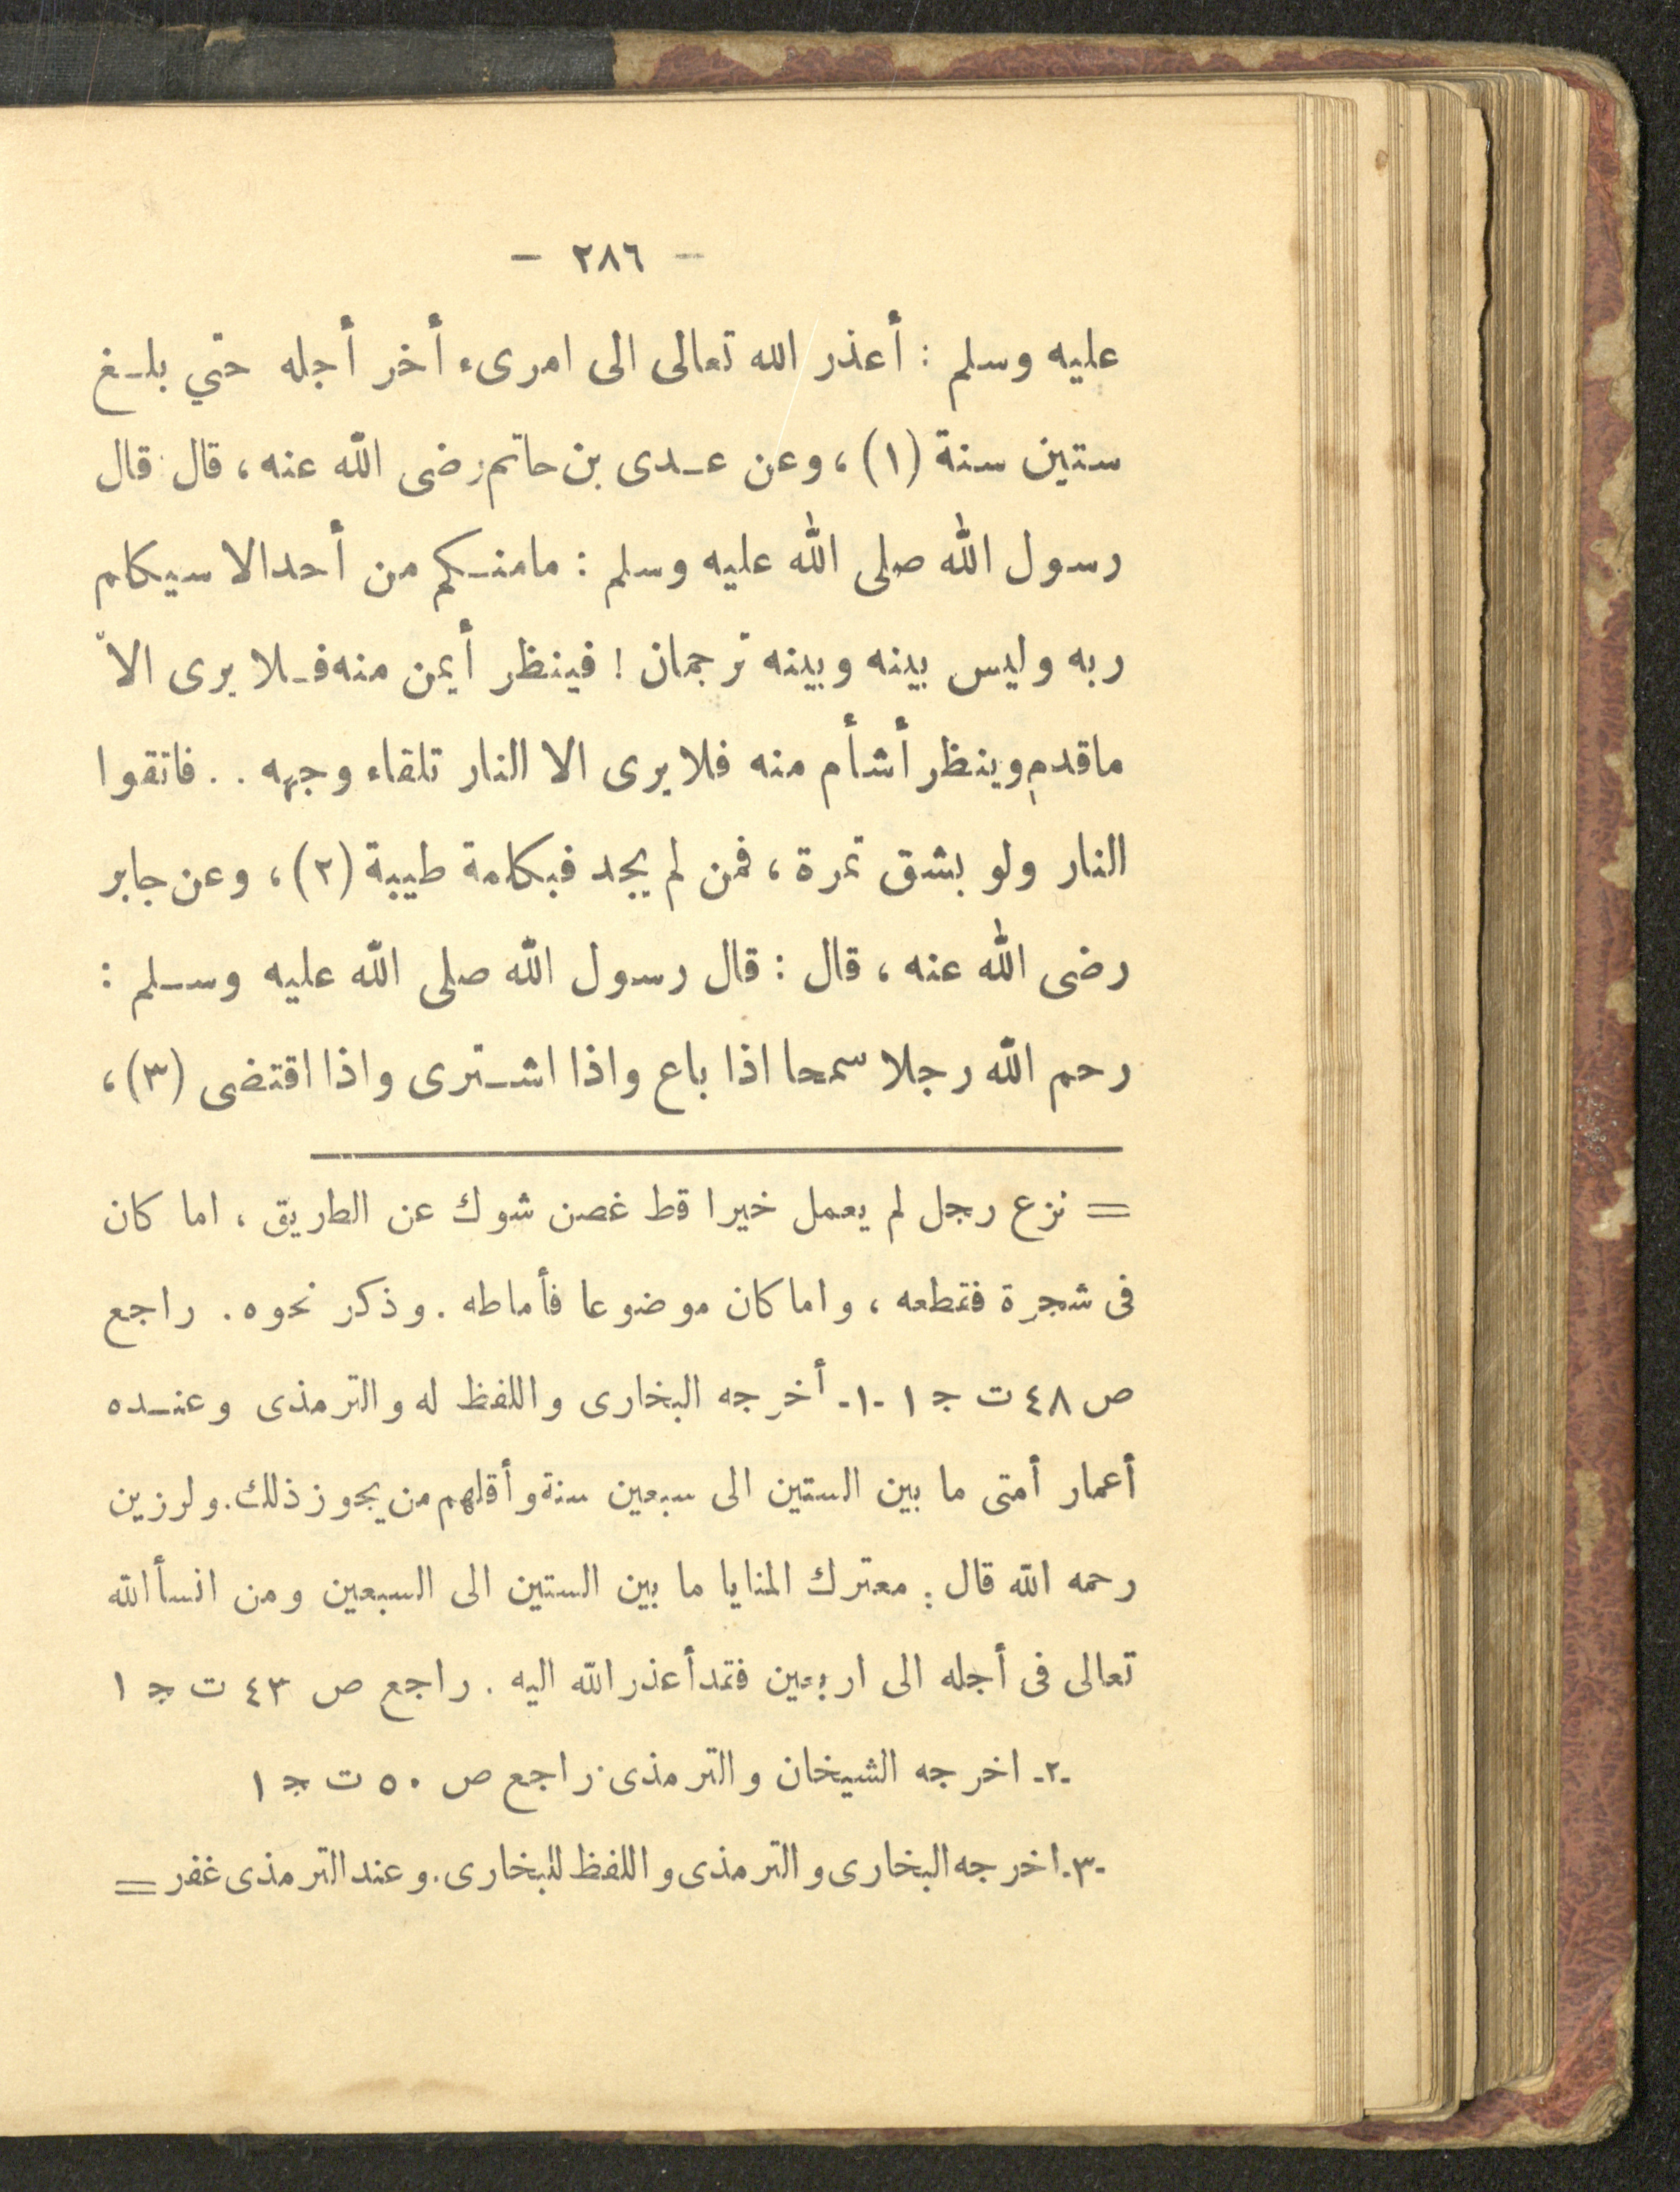 - ٢٨٦ -
عليه وسلم : أعذر الله تعالى الى امرىء أخر أجله حتي بلـغ
ستين سنة (١) ، وعن عـدى بن حاتم رضى الله عنه ، قال قال
رسول الله صلى الله عليه وسلم : مامنـكم من أحد الا سيكلم
ربه وليس بينه وبينه ترجمان ! فينظر أيمن منه فـلا يرى الا
ماقدم وينظر أشأم منه فلا يرى الا النار تلقاء وجهه . . فاتقوا
النار ولو بشق تمرة ، فمن لم يجد فبكلمة طيبة (٢) ، وعن جابر
رضى الله عنه ، قال : قال رسول الله صلى الله عليه وسـلم :
رحم الله رجلا سمحا اذا باع واذا اشـترى واذا اقتضى (٣) ،
= نزع رجل لم يعمل خيرا قط غصن شوك عن الطريق ، اما كان
فى شجرة فقطعه ، واما كان موضوعا فأماطه . وذكر نحوه . راجع
ص ٤٨ ت ج ١ -١- أخرجه البخارى واللفظ له والترمذى وعنـده
أعمار أمتى ما بين الستين الى سبعين سنة وأقلهم من يجوز ذلك . ولرزين
رحمه الله قال : معترك المنايا ما بين الستين الى السبعين ومن انسأ الله
تعالى فى أجله الى اربعين فقد أعذر الله اليه . راجع ص ٤٣ ت ج ١
-٢- اخرجه الشيخان والترمذى . راجع ص ٥٠ ت ج ١
-٣- اخرجه البخارى والترمذى واللفظ للبخارى . وعند الترمذى غفر =